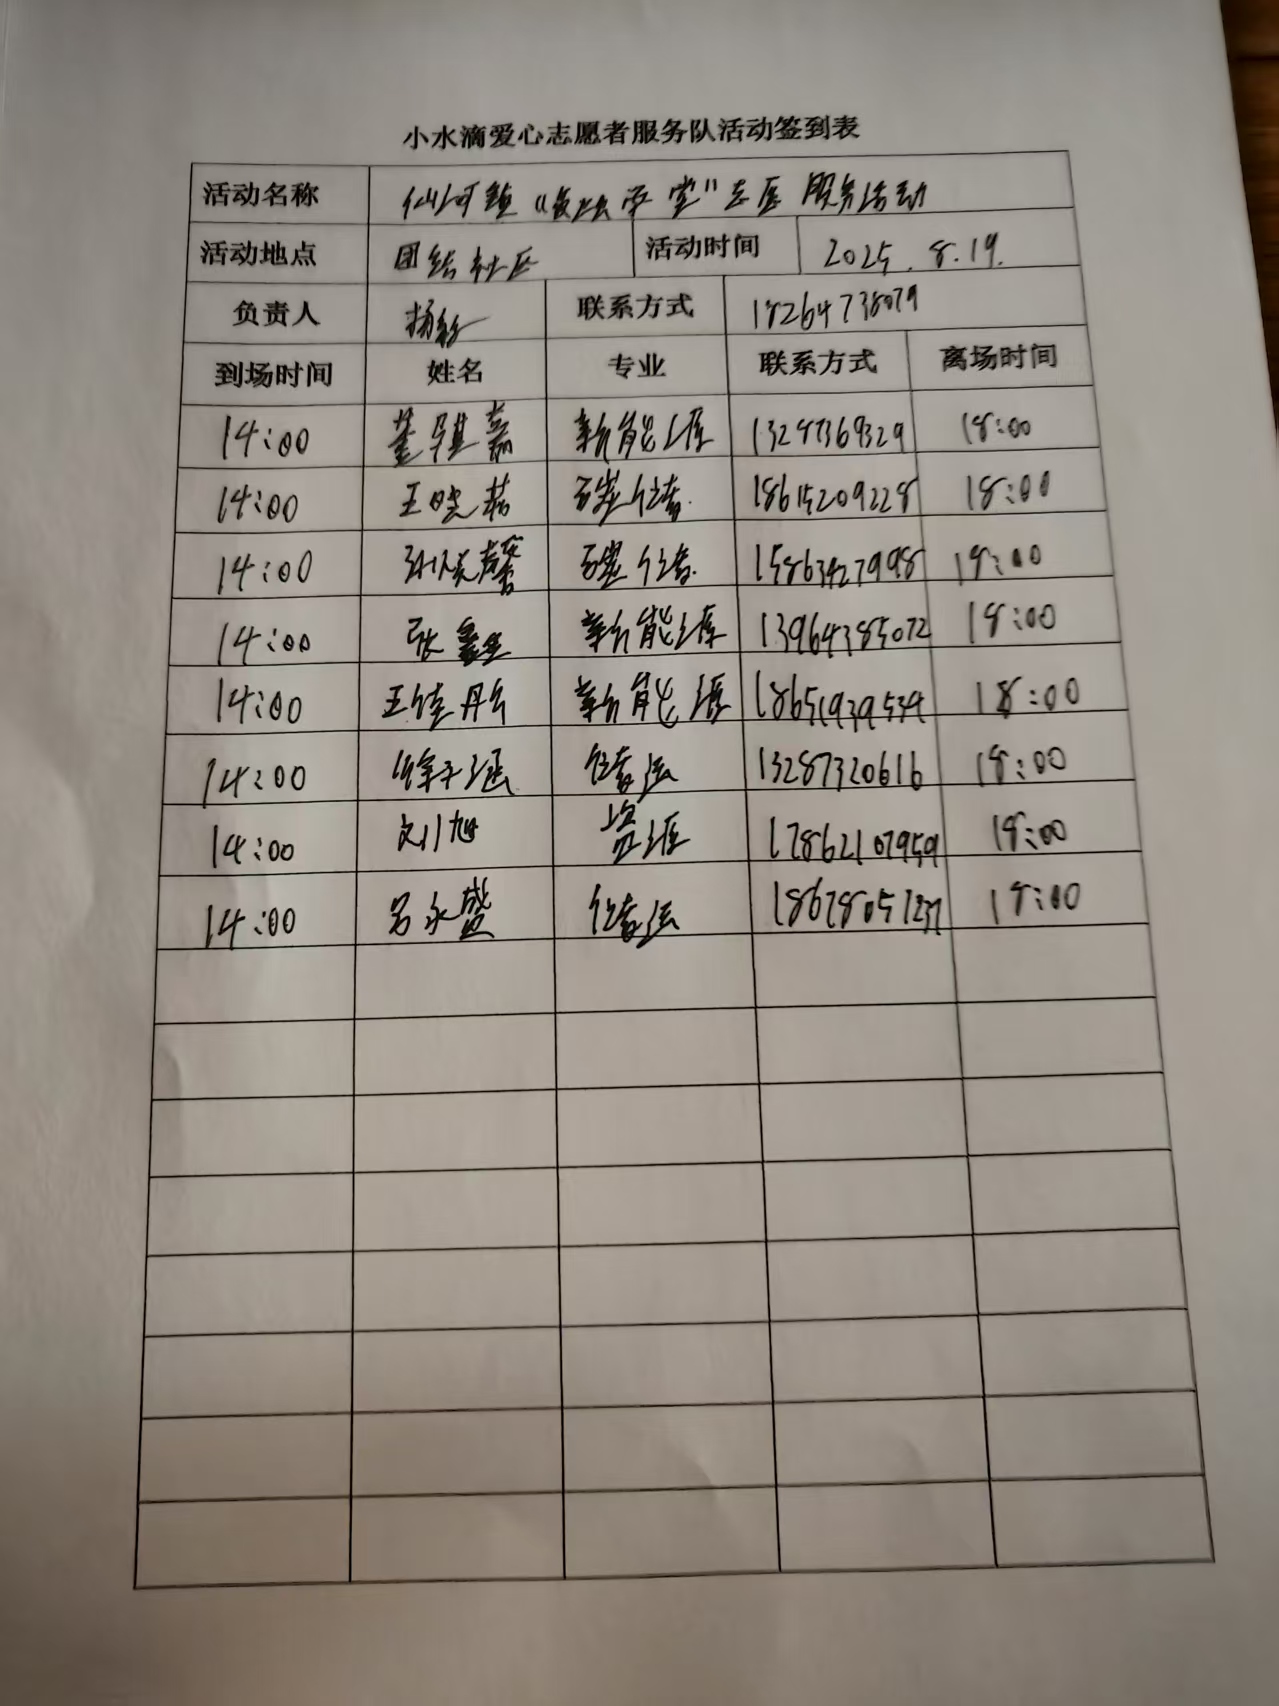 小水滴爱心志愿者服务队活动签到表
活动名称 仙河镇“ 课堂”志愿服务活动
活动地点 团结社区 活动时间 2025.8.19.
负责人 杨 联系方式 18264738079
到场时间 姓名 专业 联系方式 离场时间
14:00 董琪嘉 新能源 13287369329 18:00
14:00 王晓菲 石炭 18615209228 18:00
14:00 馨 15863427998 18:00
14:00 张鑫 新能源 13964385072 18:00
14:00 王佳丹 新能源 18651939534 18:00
14:00 徐子涵 13287320616 18:00
14:00 刘旭 资源 17862107959 18:00
14:00 吕永盛 18678051237 18:00